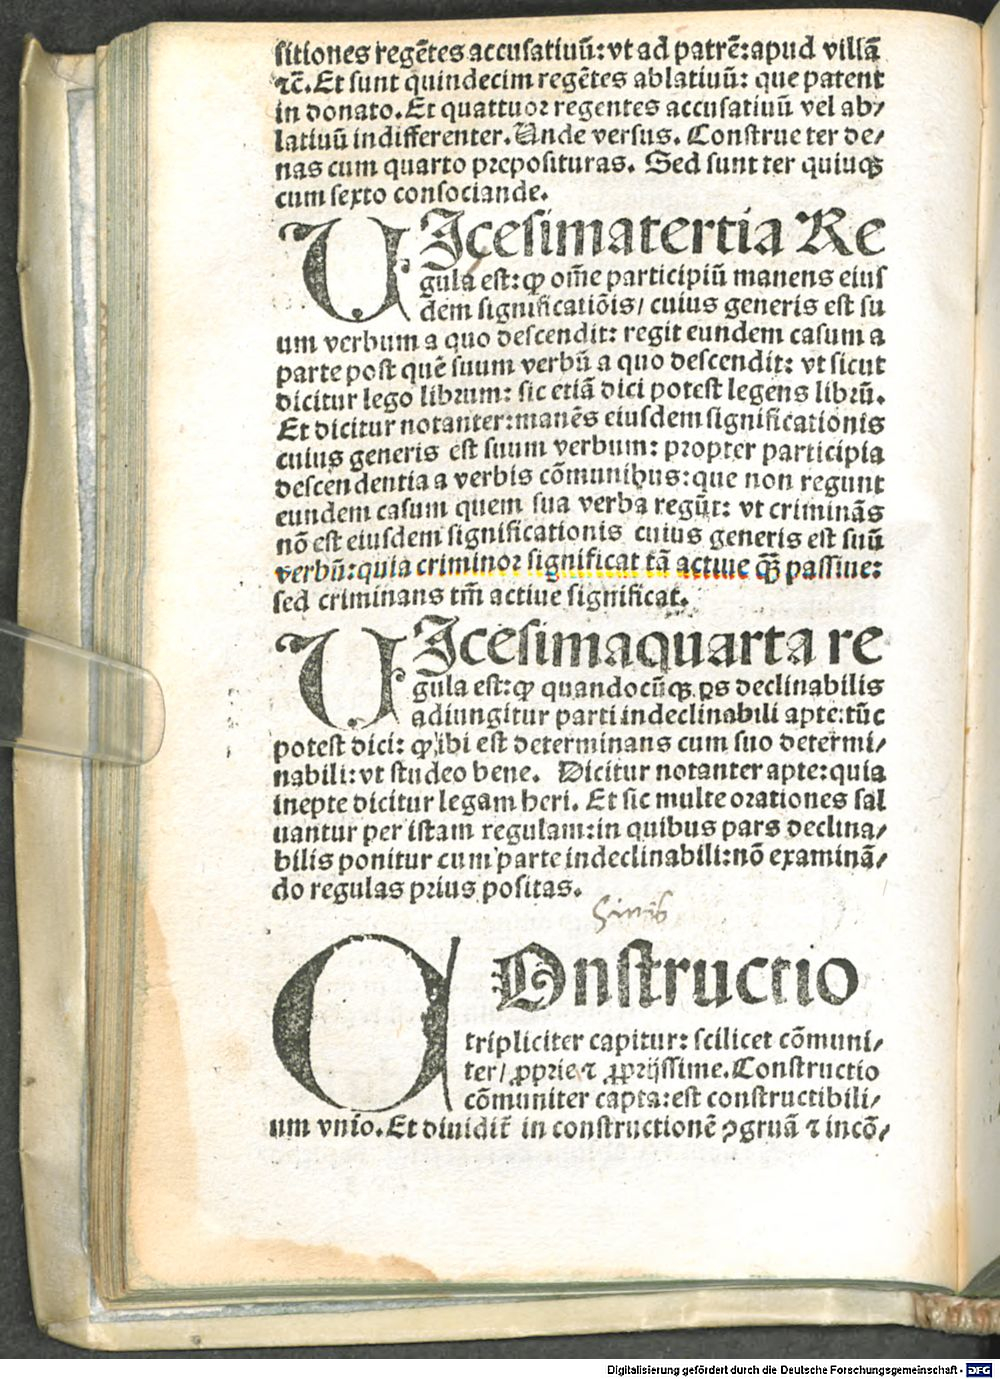 sitiones regētes accusatiuū: vt ad patrē: apud villā
⁊c̄. Et sunt quindecim regētes ablatiuū: que patent
in donato. Et quattuor regentes accusatiuū vel ab/
latiuū indifferenter. Unde versus. Construe ter de/
nas cum quarto prepositruras. Sed sunt ter quiuqꝫ
cum sexto consociande.
VIcesimatertia Re
gula est: ꝙ om̄e participiū manens eius
dem significatiōis/ cuius generis est su
um verbum a quo descendit: regit eundem casum a
parte post quē suum verbū a quo descendit: vt sicut
dicitur lego librum: sic etiā dici potest legens librū.
Et dicitur notanter: manēs eiusdem significationis
cuius generis est suum verbum: propter participia
descendentia a verbis cōmunibus: que non regunt
eundem casum quem sua verba regūt: vt criminās
nō est eiusdem significationis cuius generis est suū
verbū: quia criminor significat tā actiue qꝫ̄ passiue:
sed criminans tm̄ actiue significat.
VIcesimaquarta re
gula est: ꝙ quandocūqꝫ ꝑs declinabilis
adiungitur parti indeclinabili apte: tūc
potest dici: ꝙ ibi est determinans cum suo determi/
nabili: vt studeo bene. Dicitur notanter apte: quia
inepte dicitur legam heri. Et sic multe orationes sal
uantur per istam regulam: in quibus pars declina/
bilis ponitur cum parte indeclinabili: nō examinā/
do regulas prius positas.
COnstructio
tripliciter capitur: scilicet cōmuni/
ter/ ꝓprie ⁊ ꝓprijssime. Constructio
cōmuniter capta: est constructibili/
um vnio. Et diuidit᷑ in constructionē ꝯgruā ⁊ incō/
Digitalisierung gefördert durch die Deutsche Forschungsgemeinschaft - DFG